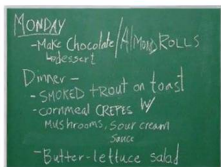 MONDAY
- Make Chocolate / Almond ROLLS
for dessert
Dinner -
- SMOKED trout on toast
- cornmeal CREPES w/
Mushrooms, Sour cream
Sauce
- Butter-lettuce salad